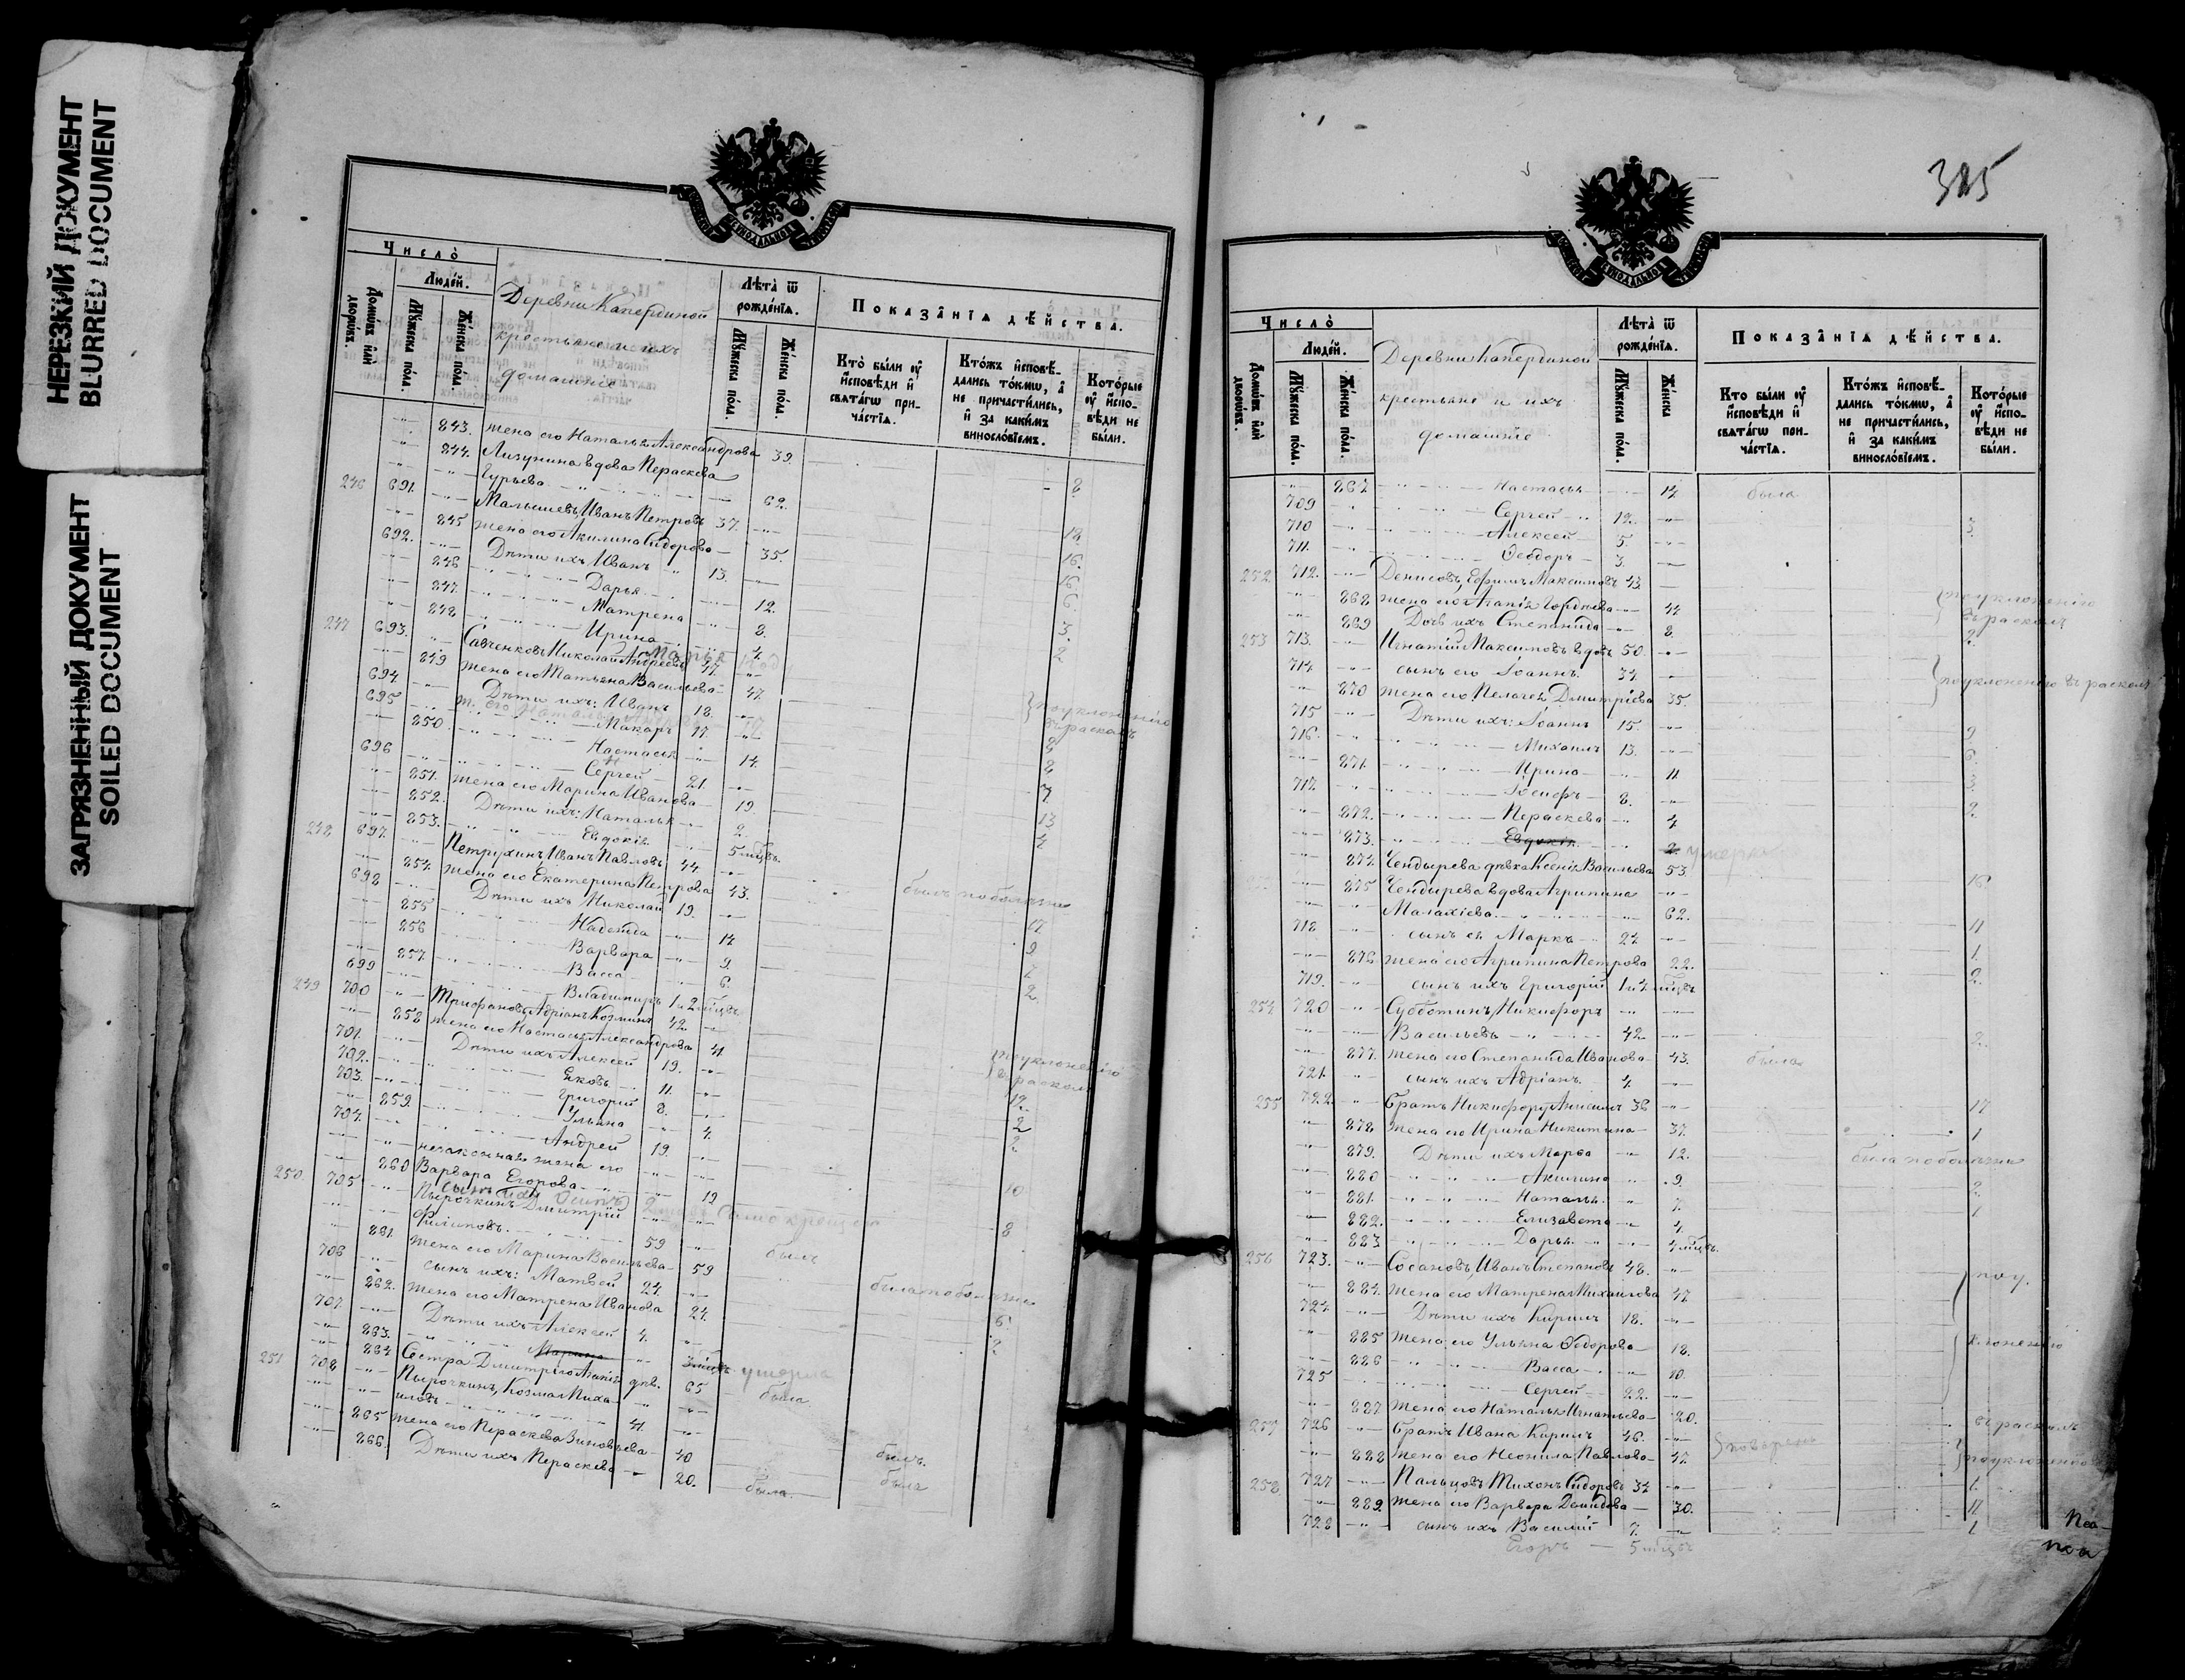 НЕРЕЗКИЙ ДОКУМЕНТ
BLURRED DOCUMENT
ЗАГРЯЗНЕННЫЙ ДОКУМЕНТ
SOILED DOCUMENT
Число̀
Домѡ́въ и҆лѝ дворѡ́въ.
Люде́й.
Мꙋ́жеска по́ла.
Же́нска по́ла.
Деревни Капердиной
крестьяне и ихъ
домашніе
Лѣта̀ ѿ рожде́нїѧ.
Мꙋ́жеска по́ла.
Же́нска по́ла.
Показа̂нїѧ дѣ́йства.
Кто̀ бы́ли ᲂу҆ и҆сповѣ́ди и҆ свѧта́гѡ при- ча́стїѧ.
Кто́жъ и҆сповѣ́- дались то́кмѡ, а҆ не причасти́лись, и҆ за каки́мъ винослѡ́вїемъ.
Кото́рые ᲂу҆ и҆спо- вѣ́ди не бы́ли.
843. жена его Наталья Александрова 39.
844. Лизунина вдова Пераскева 8
Гурьева 62.
246 691. Малышевъ, Иванъ Петровъ 37.
845 жена его Акилина Сидорова 35.
692. Дѣти ихъ Иванъ 13. 16.
846 Дарья 12.
847 Матрена 8. 3.
848 Ирина 4. 2
247 693. Савченковъ Николай Андреевъ 47.
849 жена его Татьяна Васильева 47.
694. Дѣти ихъ: Иванъ 18. поуклоненію
695 Макаръ 17. въ расколъ
850 Настасья 14.
696 Сергей 21.
851. жена его Марина Иванова 19.
852. Дѣти ихъ: Наталья 2. 13
853. Евдокія 5 мѣцъ.
248 697. Петрухинъ Иванъ Павловъ 44.
854. жена его Екатерина Петрова 43. былъ поболѣзни
698 Дѣти ихъ Николай 19.
855 Надежда 14
856 Варвара 9. 9
857 Васса 6.
699 Владимиръ 1 и 2 мѣцъ. 2.
249 700 Трифановъ, Адріанъ Козминъ 42
858 жена его Настасья Александрова 41.
701. Дѣти ихъ Алексей 19. поуклоненію
702. Яковъ 11. въ расколъ
703. Григорій 8. 12.
859. Ульяна 4. 2
704. Андрей 19. 2
незаконная жена его
860 Варвара Егорова 19 10
сынъ ихъ Осипъ
250. 705 Пырочкинъ Дмитрій 8
Филиповъ. 59 былъ
861 жена его Марина Васильева 59
706 сынъ ихъ: Матвей 24. была поболѣзни
862. жена его Матрена Иванова 24.
707. Дѣти ихъ Алексей 4. 6.
863. Марина 3 мѣцъ умерла 2
864 Сестра Дмитрія Агапія дѣв. 65 была
251 708 Пырочкинъ, Козма Миха-
иловъ 41.
865 жена его Пераскева Зиновьева 40 былъ.
866. Дѣти ихъ Пераскева 20. была. была
315
Число̀
Домѡ́въ и҆лѝ дворѡ́въ.
Люде́й.
Мꙋ́жеска по́ла.
Же́нска по́ла.
Деревни Капердиной
крестьяне и ихъ
домашніе
Лѣта̀ ѿ рожде́нїѧ.
Мꙋ́жеска по́ла.
Же́нска
Показа̂нїѧ дѣ́йства.
Кто бы́ли ᲂу҆ и҆сповѣ́ди и҆ свѧта́гѡ при- ча́стїѧ.
Кто́жъ и҆сповѣ́- дались то́кмѡ, а҆ не причасти́лись, и҆ за каки́мъ винослѡ́вїемъ.
Кото́рые ᲂу҆ и҆спо- вѣ́ди не бы́ли.
867 Настасья 14 была
709 Сергей 12.
710 Алексей 5. 3.
711. Ѳеодоръ 3.
252. 712. Денисовъ, Ефимъ Максимовъ 43. поуклоненію
868 жена его Агапія Гордѣева 44 въ расколъ
869 Дочь ихъ Степанида 8. 2.
253 713. Игнатій Максимовъ вдовъ 50.
714 сынъ его Іоаннъ 34. поуклоненію въ расколъ
870 жена его Пелагея Дмитріева 35.
715 Дѣти ихъ: Іоаннъ 15. 9
716. Михаилъ 13. 6.
871. Ирина 11 3.
717. Іосифъ 8. 2.
872. Пераскева 4
873. Евдокія 2. умерла
874. Чендырева дѣвка Ксенія Васильева 53. 16.
875 Чендырева вдова Агрипина
Малахіева 62. 11
718. сынъ ея Маркъ 24
876. жена его Агрипина Петрова 22. 1.
719. сынъ ихъ Григорій 1 и 4 мѣцъ 2.
254 720 Субботинъ, Никифоръ
Васильевъ 42 2.
877. жена его Степанида Иванова 43. была
721. сынъ ихъ Адріанъ 4.
255 722. Братъ Никифору Анисимъ 36 17
878 жена его Ирина Никитина 37. 1
879. Дѣти ихъ Марѳа 12. была поболѣзни
880 Акилина 9. 2
881. Наталья 7. 1
882. Елизавета 4.
883 Дарья 4 мѣцъ.
256 723. Собановъ, Иванъ Степановъ 48. поу.
884. жена его Матрена Михаилова 47
724. Дѣти ихъ Кирилъ 18.
885 жена его Ульяна Ѳедорова 18. клоненію
886 Васса 10.
725 Сергей 22.
887 жена его Наталья Игнатьева 20. въ расколъ
257 726 Братъ Ивана Кирилъ 46.
888 жена его Неонила Павлова 47. поуклоненію
258 727 Пальцовъ Тихонъ Сидоровъ 34 1.
889. жена его Варвара Демидова 30. 11
728 сынъ ихъ Василій 7. 1
Егоръ 5 мѣцъ